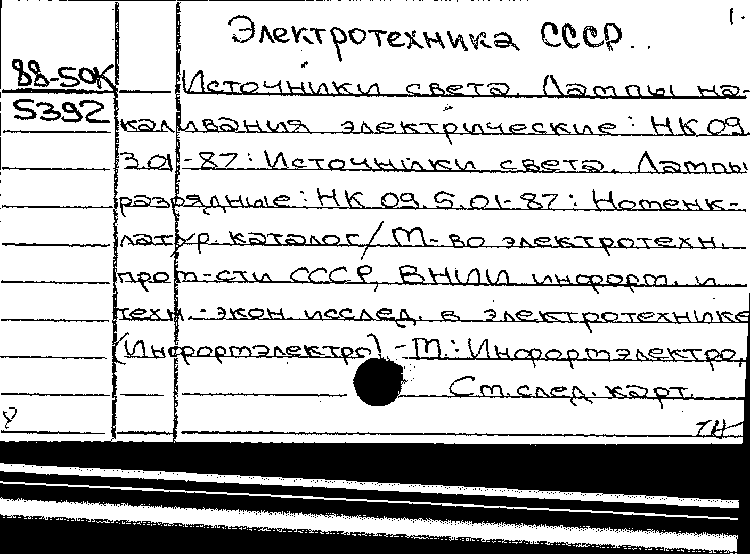 1.
Электротехника СССР..
88-50К
5392
Источники света. Лампы на-
каливания электрические: НК 09.
3.01-87: Источники света. Лампы
разрядные: НК 09.5.01-87: Номенк-
латур. каталог/М-во электротехн.
пром-сти СССР, ВНИИ информ. и
техн.-экон. исслед. в электротехнике
(Информэлектро).-М.: Информэлектро,
См. след. карт.